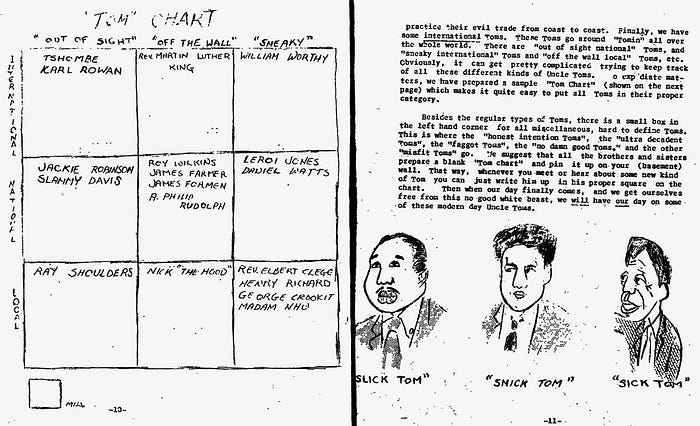 "TOM" CHART
"OUT OF SIGHT" "OFF THE WALL" "SNEAKY"
INTERNATIONAL
TSHOMBE
KARL ROWAN
REV. MARTIN LUTHER
KING
WILLIAM WORTHY
NATIONAL
JACKIE ROBINSON
SLAMMY DAVIS
ROY WILKINS
JAMES FARMER
JAMES FORMEN
A. PHILIP
RUDOLPH
LEROI JONES
DANIEL WATTS
LOCAL
RAY SHOULDERS
NICK "THE HOOD"
REV. ELBERT CLEGG
HENRY RICHARD
GEORGE CROOKIT
MADAM NHU
MILL
-10-
practice their evil trade from coast to coast. Finally, we have
some international Toms. These Toms go around "Tomin" all over
the whole world. There are "out of sight national" Toms, and
"sneaky international" Toms and "off the wall local" Toms, etc.
Obviously, it can get pretty complicated trying to keep track
of all these different kinds of Uncle Toms. o exp diate mat-
ters, we have prepared a sample "Tom Chart" (shown on the next
page) which makes it quite easy to put all Toms in their proper
category.
Besides the regular types of Toms, there is a small box in
the left hand corner for all miscellaneous, hard to define Toms.
This is where the "honest intention Toms", the "ultra decadent
Toms", the "faggot Toms", the "no damn good Toms," and the other
"misfit Toms" go. We suggest that all the brothers and sisters
prepare a blank "Tom chart" and pin it up on your (basement)
wall. That way, whenever you meet or hear about some new kind
of Tom you can just write him up in his proper square on the
chart. Then when our day finally comes, and we get ourselves
free from this no good white beast, we will have our day on some
of these modern day Uncle Toms.
SLICK TOM" "SNICK TOM" "SICK TOM"
-11-